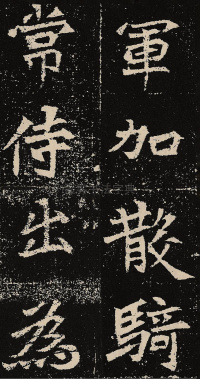 軍加散騎
常侍出為